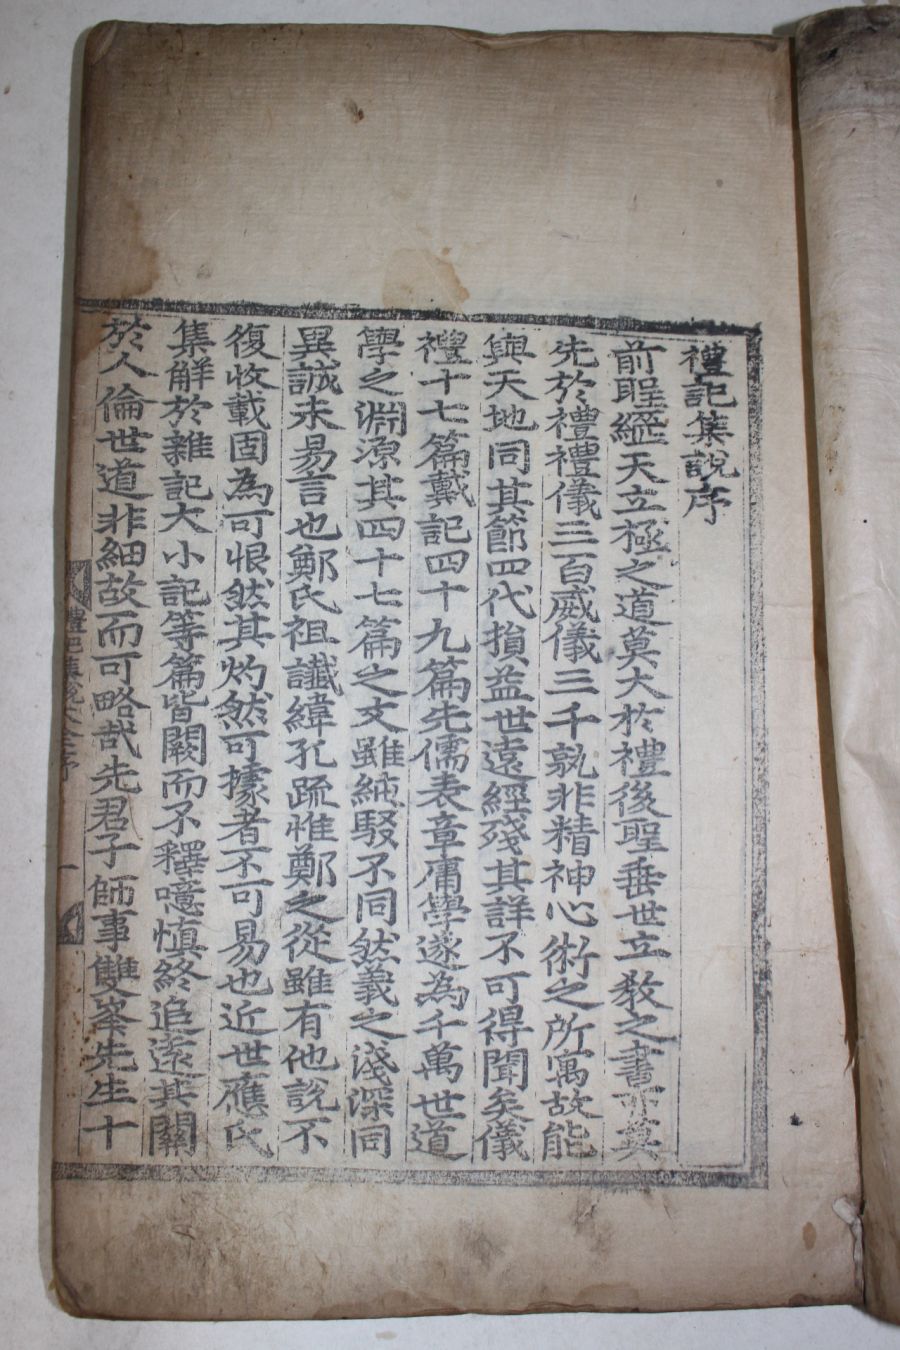 禮記集說序
前聖繼天立極之道莫大於禮後聖垂世立敎之書亦莫
先於禮禮儀三百威儀三千孰非精神心術之所寓故能
與天地同其節四代損益世遠經殘其詳不可得聞矣儀
禮十七篇戴記四十九篇先儒表章庸學遂為千萬世道
學之淵源其四十七篇之文雖純駁不同然義之淺深同
異誠未易言也鄭氏祖讖緯孔疏惟鄭之從雖有他說不
復收載固為可恨然其灼然可據者不可易也近世應氏
集解於雜記大小記等篇皆闕而不釋噫愼終追遠其關
於人倫世道非細故而可略哉先君子師事雙峯先生十
禮記集說大全序
一